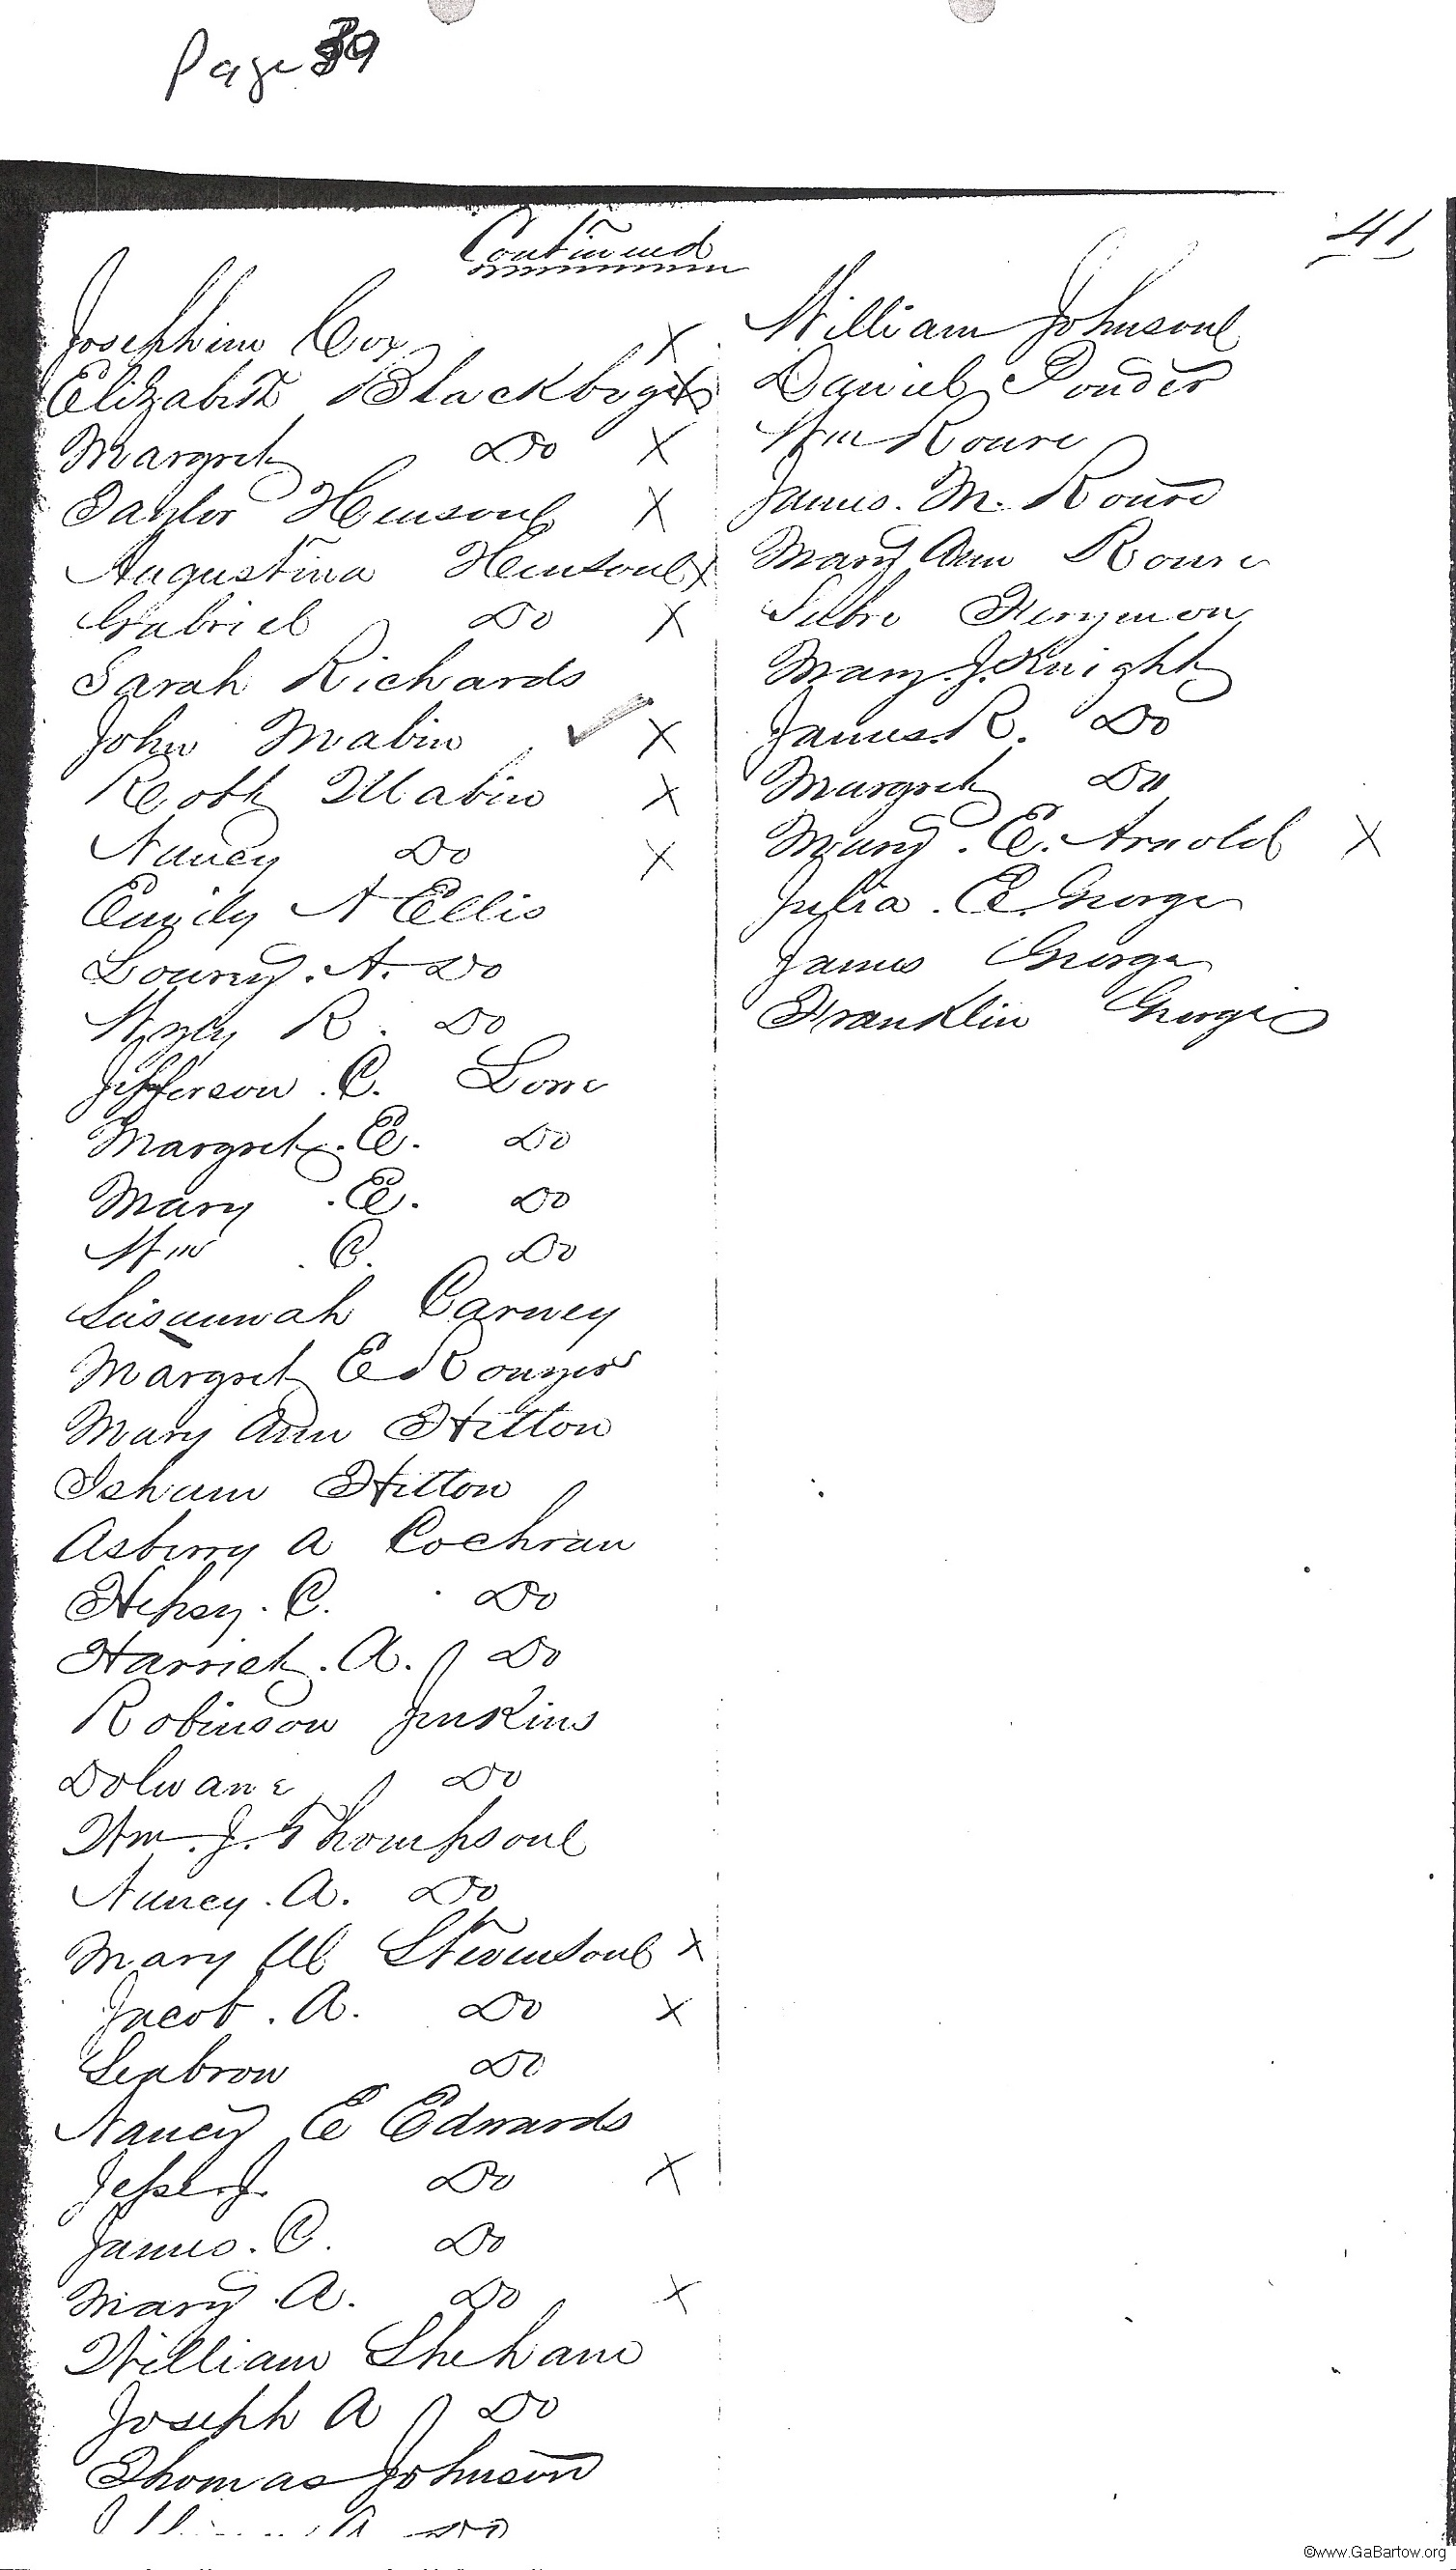 Page 39
41
Continued
Josephine Cox X
Elizabeth Blackbyrd X
Margret Do X
Taylor Hensonl X
Augustina Hensonl X
Gabriel Do X
Sarah Richards
John Mabin ✓ X
Robt Mabin X
Nancy Do X
Emily A Ellis
Lourey. A. Do
Wyly R. Do
Jefferson. C. Lone
Margret. E. Do
Mary. E. Do
Wm. C. Do
Susannah Carney
Margret E
Mary Ann Hitton
Isham Hitton
Asberry A Cochran
Hepsy. C. Do
Harriet. A. Do
Robinson Jenkins
Dolwane Do
Wm. J. Thompsonl
Nancy. A. Do
Mary Stevensonl X
Jacob. A. Do X
Seabrow Do
Nancy E Edwards
Jesse J. Do X
James. C. Do
Mary A. Do X
William Shehane
Joseph A Do
Thomas Johnson
Do
William Johnsonl
Daniel Ponder
Wm Roure
James. M. Roure
Mary Ann Roure
Mary. J. Knight
James. R. Do
Margret Do
Mary. E. Arnold X
Julia. E. George
James George
Franklin George
©www.GaBartow.org